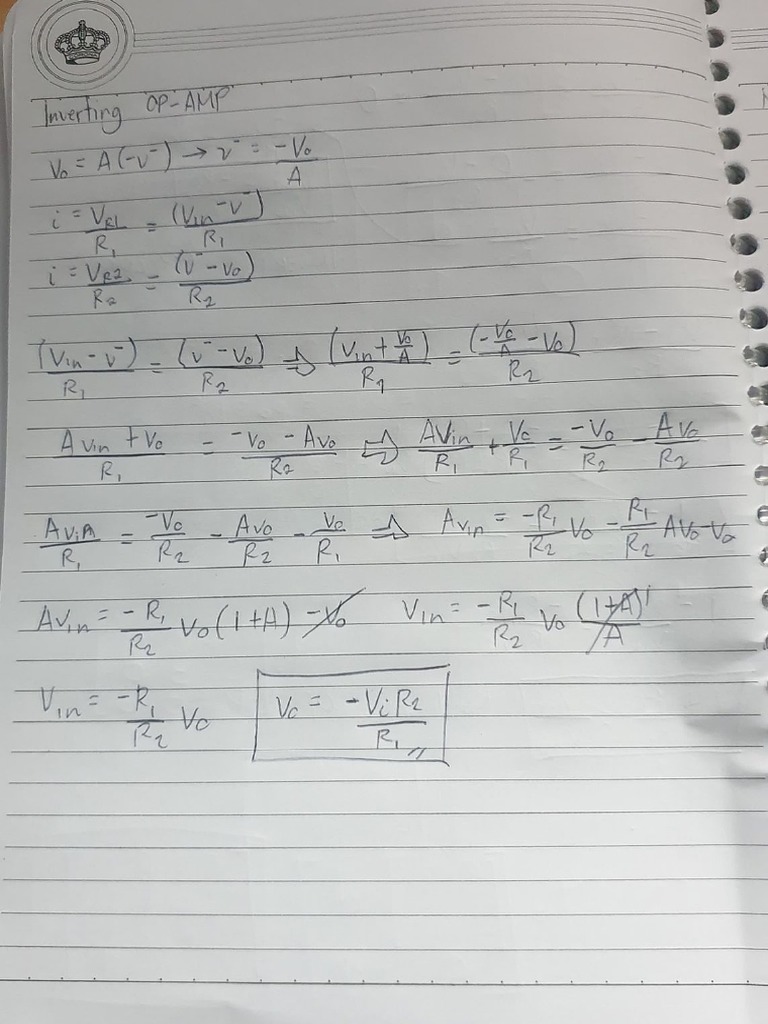 Inverting OP-AMP
Vo = A(-v⁻) → v⁻ = -Vo/A
i = VR1/R1 = (Vin - v⁻)/R1
i = VR2/R2 = (v⁻ - vo)/R2
(Vin - v⁻)/R1 = (v⁻ - Vo)/R2 ⇒ (Vin + Vo/A)/R1 = (-Vo/A - Vo)/R2
(Avin + vo)/R1 = (-vo - Avo)/R2 ⇒ AVin/R1 + Vo/R1 = -Vo/R2 - Avo/R2
Avin/R1 = -Vo/R2 - Avo/R2 - Vo/R1 ⇒ Avin = -R1/R2 Vo - R1/R2 AVo - Vo
Avin = -R1/R2 Vo(1+A) - Vo Vin = -R1/R2 Vo (1+A)¹/A
Vin = -R1/R2 Vo Vo = -ViR2/R1